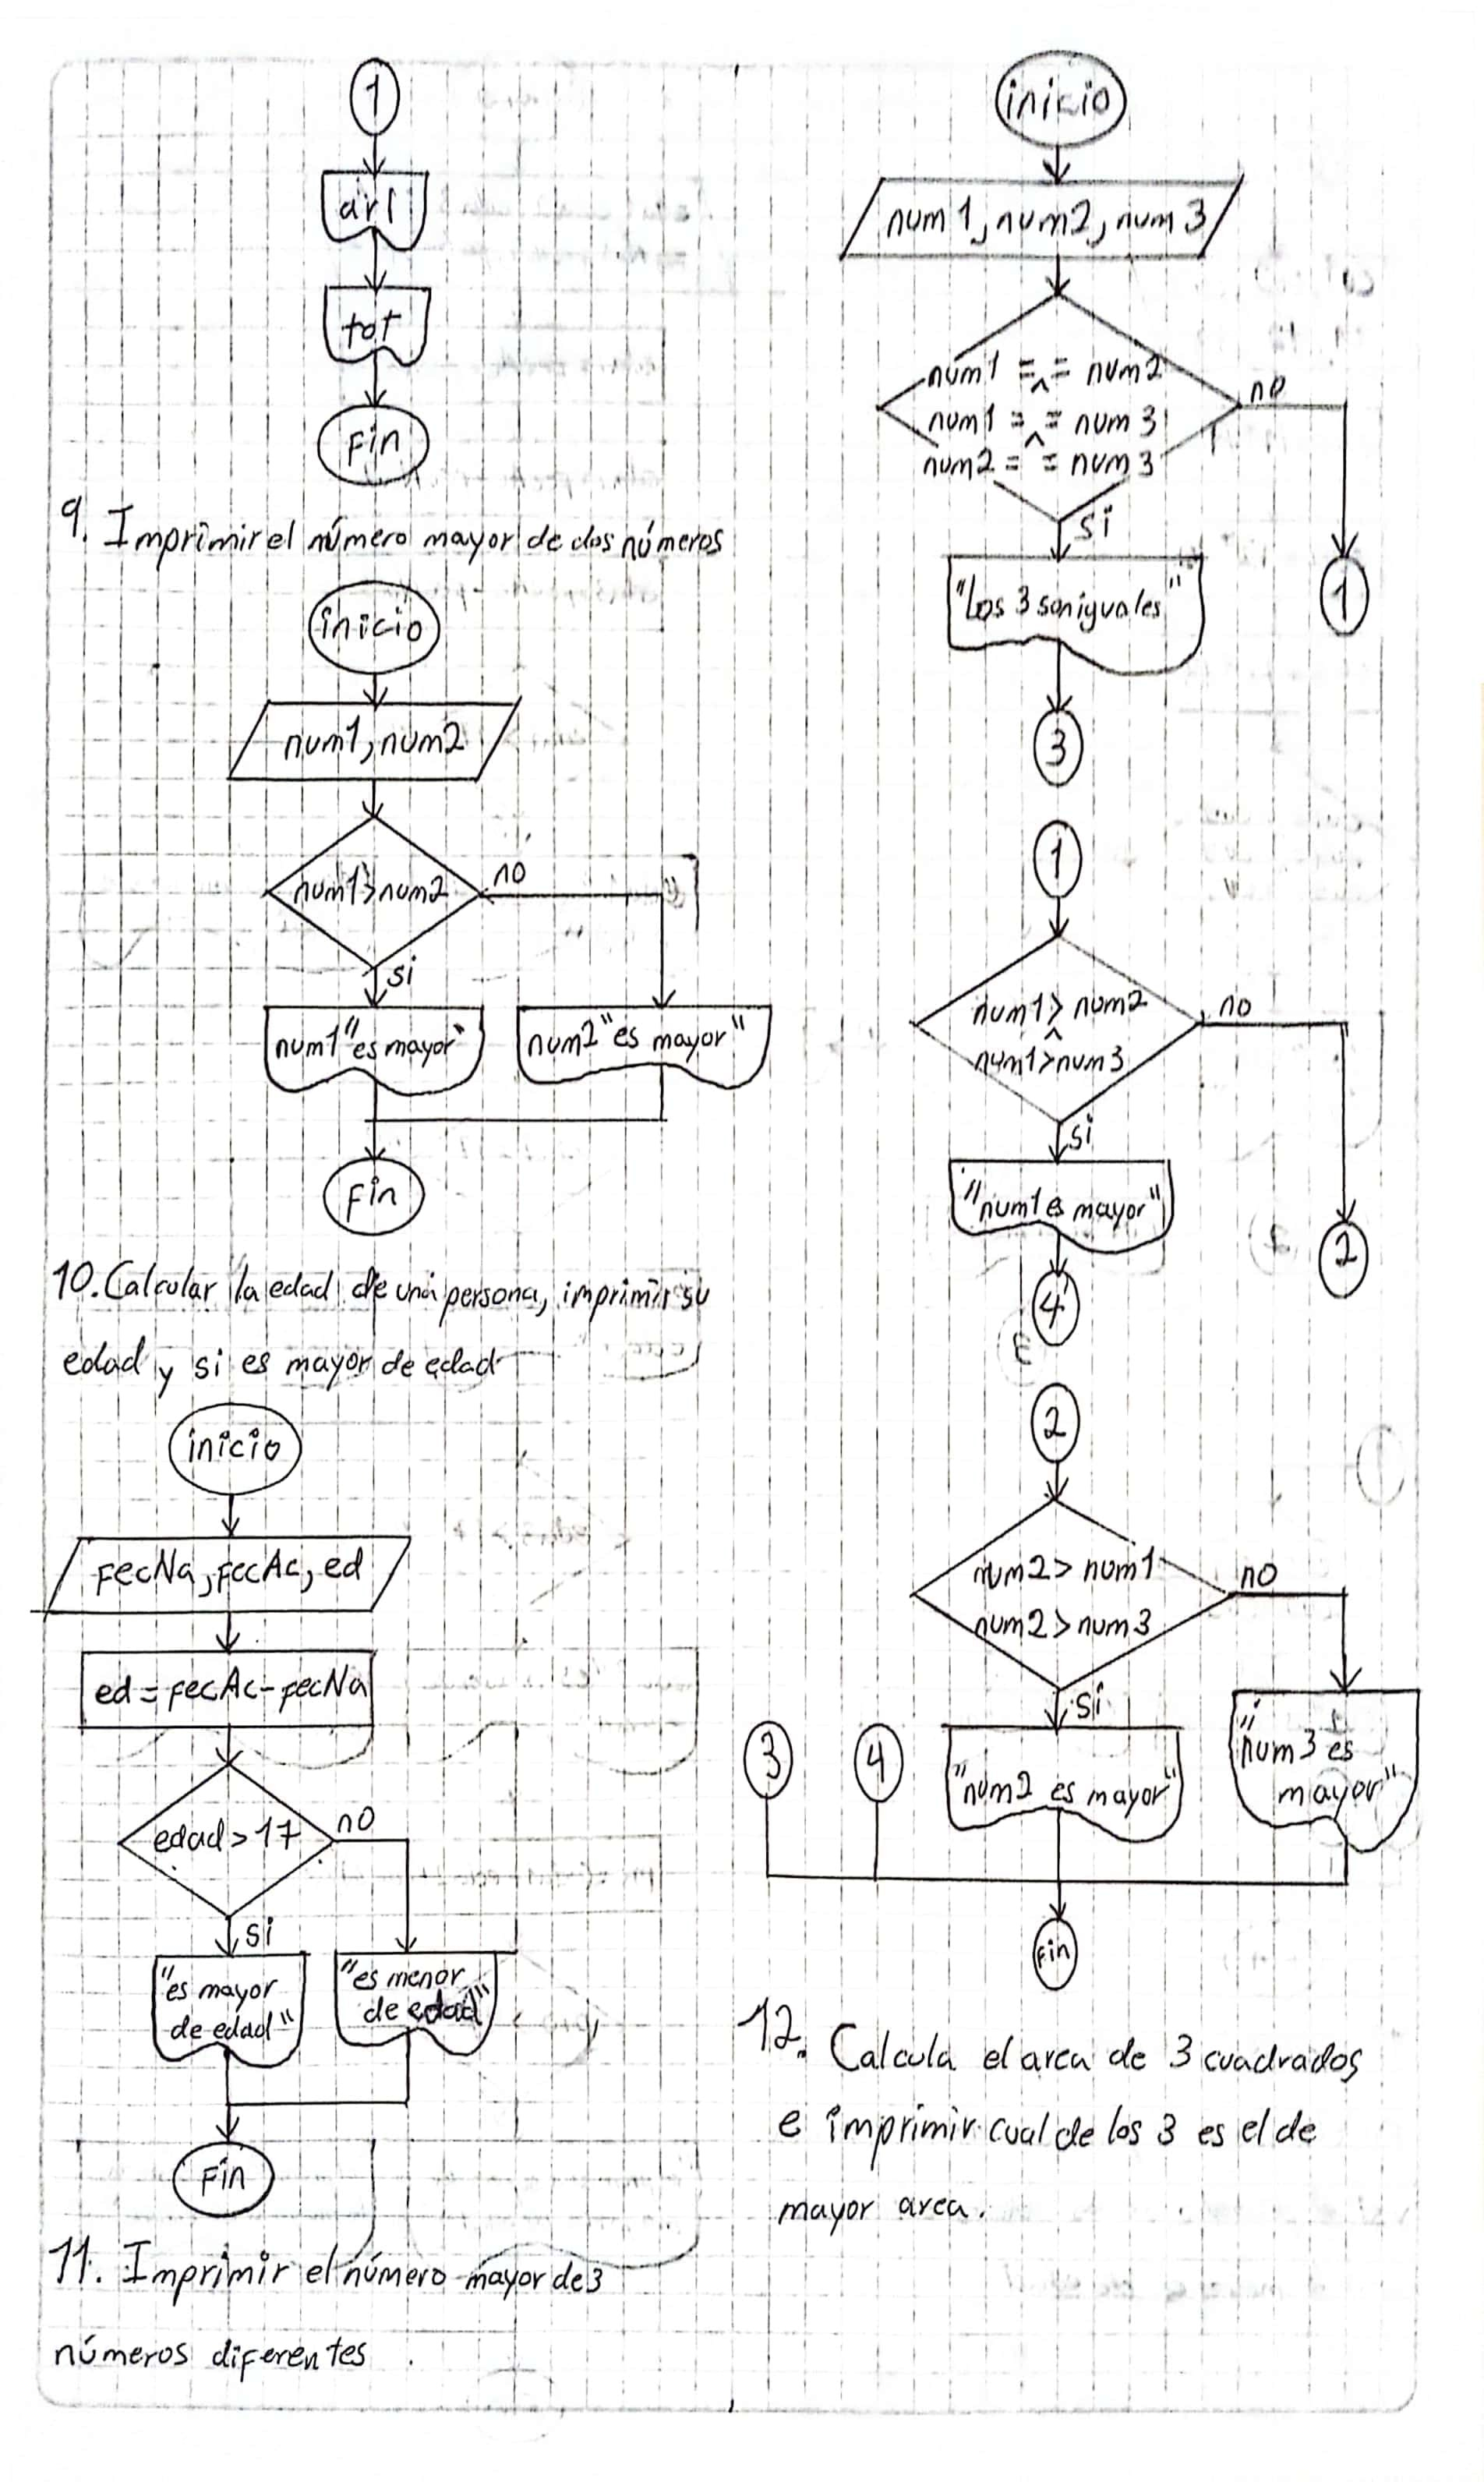 1
arl
tot
Fin
9. Imprimir el número mayor de dos números
inicio
num1, num2
num1>num2
no
si
num1 "es mayor"
num2 "es mayor"
Fin
10. Calcular la edad de una persona, imprimir su
edad y si es mayor de edad
inicio
fecNa, fecAc, ed
ed = fecAc - fecNa
edad > 17
no
si
"es mayor
de edad"
"es menor
de edad"
Fin
11. Imprimir el número mayor de 3
números diferentes
inicio
num1, num2, num3
num1 = = num2
^
num1 = = num3
^
num2 = = num3
no
si
"Los 3 son iguales"
1
3
1
num1 > num2
^
num1 > num3
no
si
"num1 es mayor"
2
4
2
num2 > num1
num2 > num3
no
si
3
4
"num2 es mayor"
"num3 es
mayor"
Fin
12. Calcula el area de 3 cuadrados
e imprimir cual de los 3 es el de
mayor area.